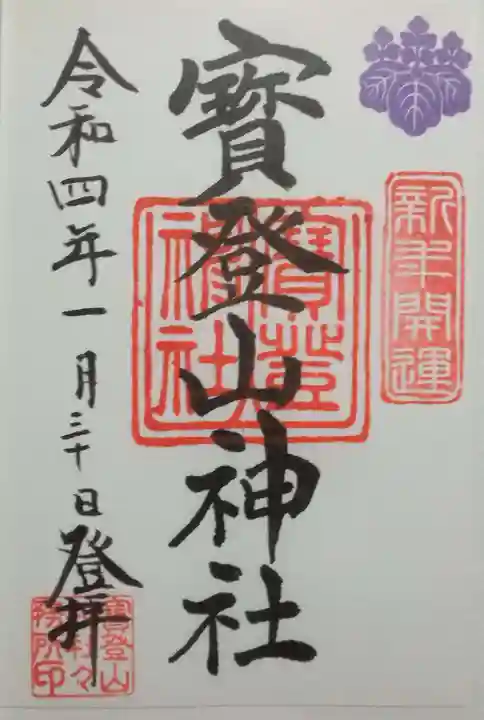 新年開運
寳登山神社
寳登神社
令和四年一月三十日登拝
寳登山
神社々
務所印